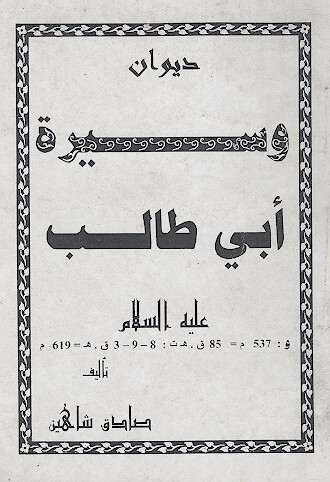 ديوان
وسيرة
أبي طالب
عليه السلام
و: 537 م = 85 ق.هـ ت: 8-9-3 ق.هـ = 619 م
تأليف
صادق شاهين